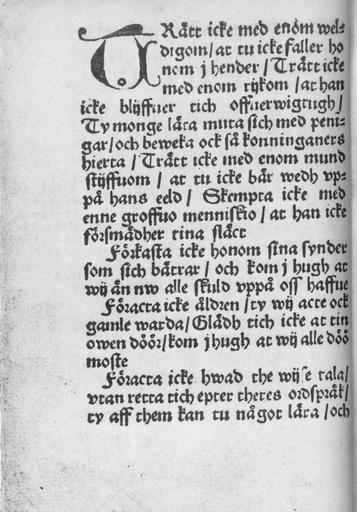 TRätt icke med enom wel⸗
digom/at tu icke faller ho
nom j hender/Trätt icke
med enom rijkom/at han
icke blijffuer tich offuerwigtugh/
Ty monge läta muta sich med peni⸗
gar/och beweka ock så konninganers
hierta/Trätt icke med enom mund
stijffuom/at tu icke bär wedh vp⸗
på hans eeld/Skempta icke med
enne groffuo menniskio/at han icke
försmädher tina slächt
Förkasta icke honom sina synder
som sich bättrar/och kom j hugh at
wij än nw alle skuld vppå oss haffue
Föracta icke äldren/ty wij acte ock
gamle warda/Glädh tich icke at tin
owen döör/kom j hugh at wij alle döö
moste
Föracta icke hwad the wijse tala/
vtan retta tich epter theres ordspråk/
ty aff them kan tu något lära/och